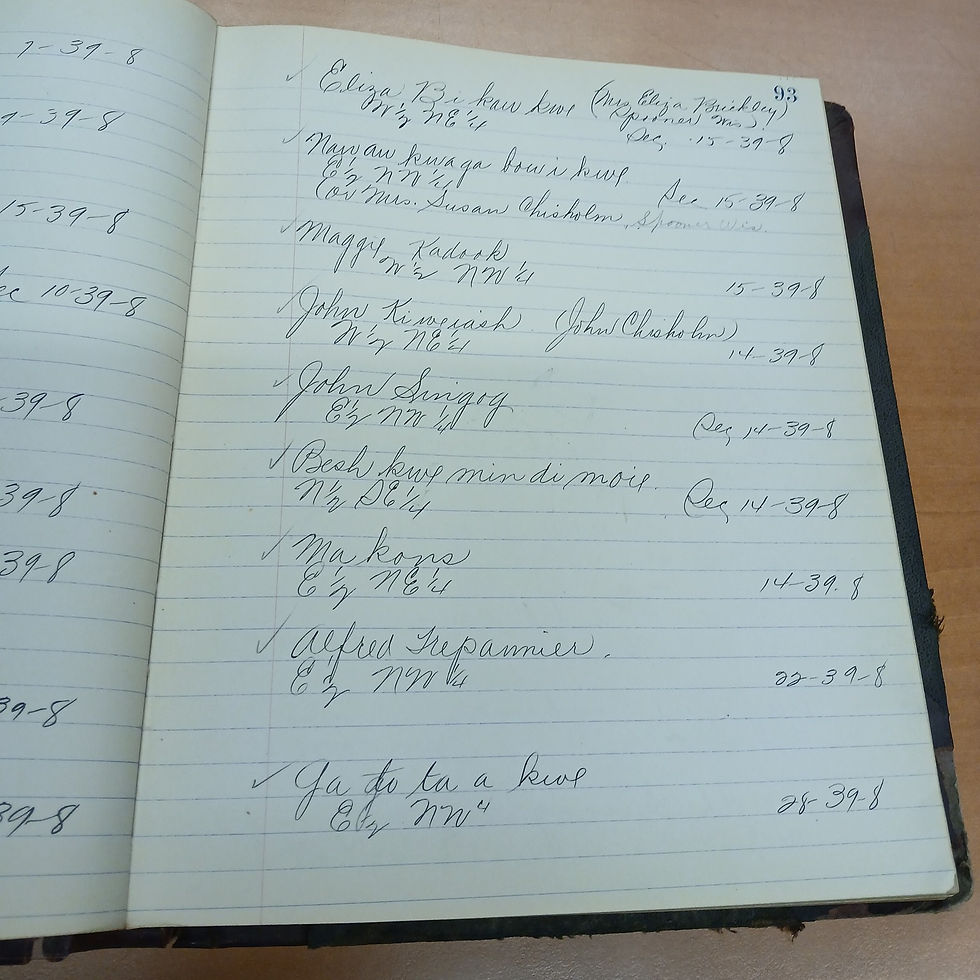 7-39-8
9-39-8
15-39-8
ec 10-39-8
39-8
39-8
39-8
39-8
39-8
93
✓ Eliza Bi kaw kwe (Mrs. Eliza Brickley)
W½ NE¼ Spooner Wis.)
Sec. 15-39-8
✓ Naw aw kwaga bow i kwe
E½ NW¼ Sec 15-39-8
(or Mrs. Susan Chisholm, Spooner Wis.
✓ Maggie Kadook
W½ NW¼ 15-39-8
✓ John Kiweiash (John Chisholm)
W½ NE¼ 14-39-8
✓ John Singog
E½ NW¼ Sec 14-39-8
✓ Besh kwe min di moie.
N½ SE¼ Sec 14-39-8
✓ Ma kons
E½ NE¼ 14-39.8
✓ Alfred Trepannier.
E½ NW¼ 22-39-8
✓ Ga do ta a kwe
E½ NW4 28-39-8